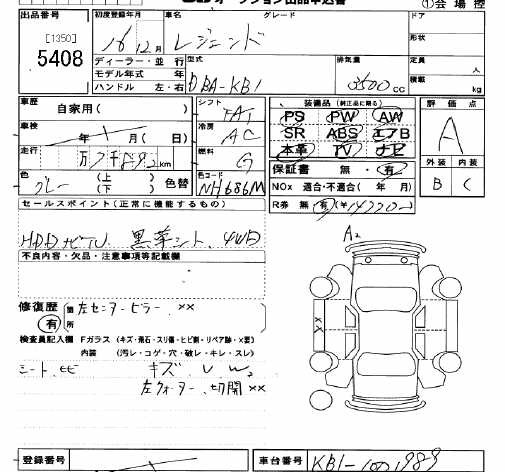 オークション出品申込書 ①会場控
出品番号 初度登録年月 車名 グレード ドア
[1350] 5408 16 12月 レジェンド 形状
ディーラー・並 行 型式 排気量 定員 人
モデル年式 年 DBA-KB1 3500cc 積載
ハンドル 左・右 kg
車歴 自家用( ) シフト FAT 装備品 (純正品に限る) 評 価 点
PS PW AW A
車検 年 月( 日) 冷房 AC SR ABS エアB
本革 TV ナビ 外装 内装
走行 万 千 km 燃料 G 保証書 無・有 B C
色 グレー (上) (下) 色替 色コード NH686M NOx 適合・不適合( 年 月)
セールスポイント(正常に機能するもの) R券 無・有(¥
HDDナビTV 黒革シート、4WD A2
不良内容・欠品・注意事項等記載欄
修復歴 有 箇所 左センターピラー ××
検査員記入欄 Fガラス (キズ・飛石・スリ傷・ヒビ割・リペア跡・X要)
内装 (汚レ・コゲ・穴・破レ・キレ・スレ)
キズ U W2
左クォーター、切開××
××
登録番号 車台番号 KB1-1001989